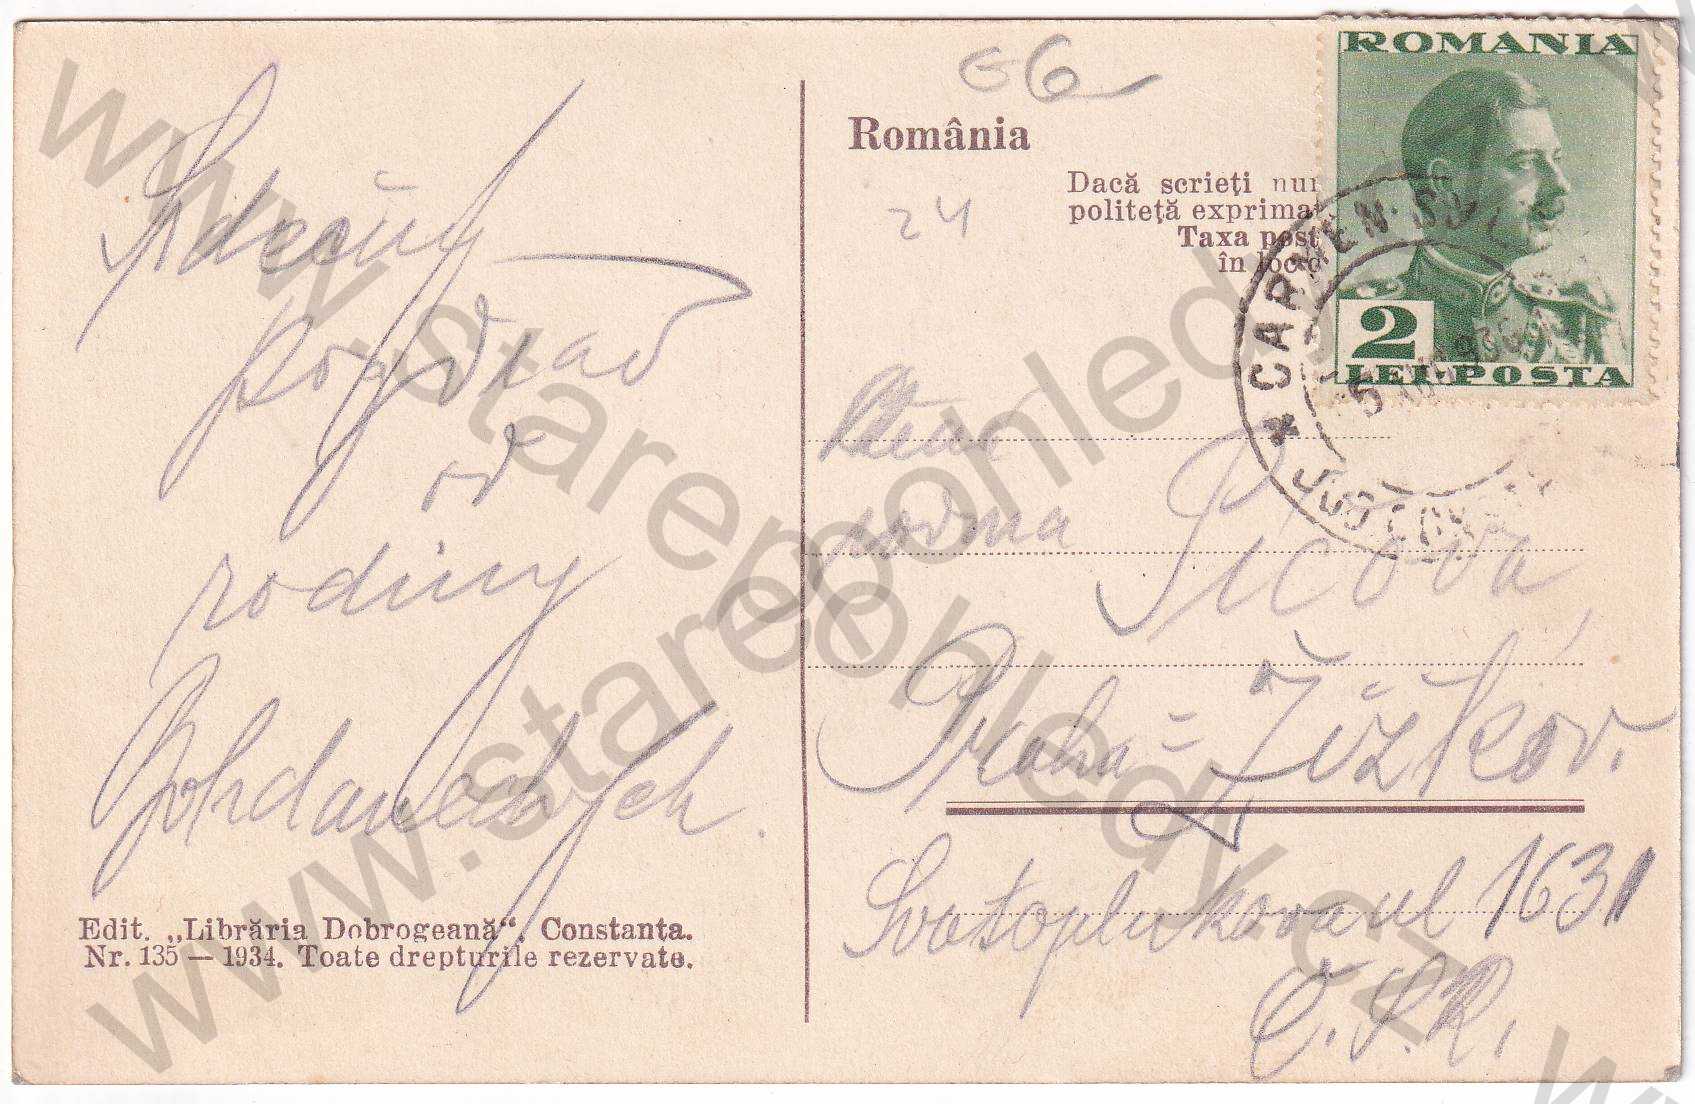 Srdečný
pozdrav
od
rodiny
Bohdaneckých.
Edit. „Librăria Dobrogeană“, Constanta.
Nr. 135 — 1934. Toate drepturile rezervate.
66
24
România
Dacă scrieți nu
politeță exprima
Taxa post
în loc d
ROMANIA
2
LEI·POSTA
* CARMEN·SYL
5 936
JUD CO
rodina Picova,
Praha - Žižkov.
Svatoplukova ul 1631
Č.S.R.
www.starepohledy.cz
www.starepohledy.cz